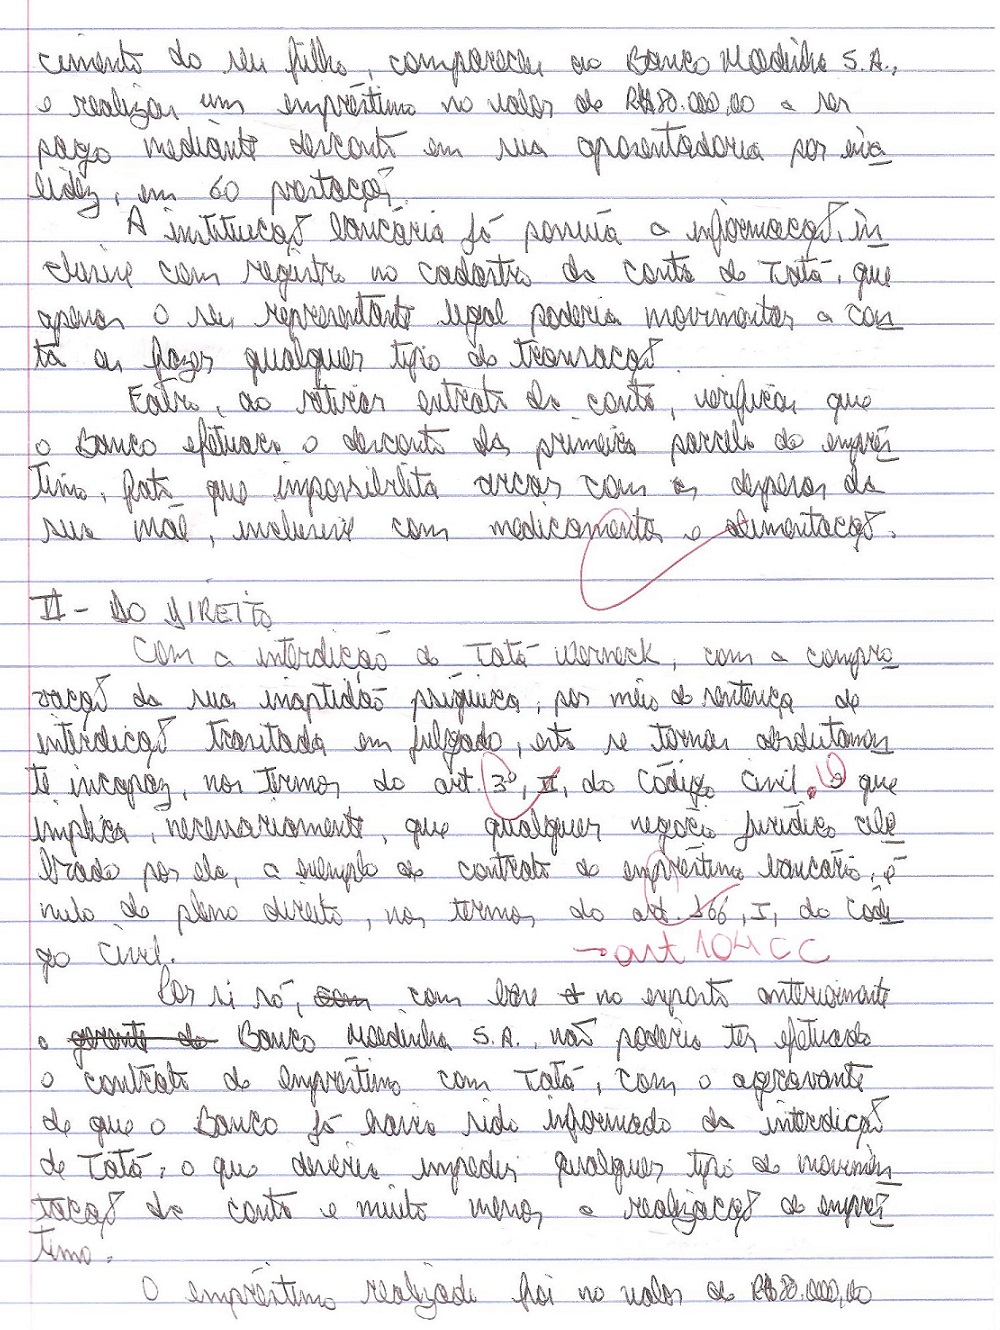 cimento do seu filho, compareceu ao Banco Moedinha S.A.,
e realizou um empréstimo no valor de R$80.000,00 a ser
pago mediante desconto em sua aposentadoria por inva
lidez, em 60 prestações.
A instituição bancária já possuía a informação, in
clusive com registro no cadastro da conta de Tatá, que
apenas o seu representante legal poderia movimentar a con
ta ou fazer qualquer tipo de transação
Fábio, ao retirar extrato da conta, verificou que
o Banco efetuara o desconto da primeira parcela do emprés
timo, fato que impossibilita arcar com as despesas da
sua mãe, inclusive com medicamentos e alimentação.
II - DO DIREITO
Com a interdição de Tatá Werneck, com a compro
vação da sua inaptidão psíquica, por meio de sentença de
interdição transitada em julgado, esta se tornou absolutamen
te incapaz, nos termos do art. 3º, II, do Código Civil. O que
implica, necessariamente, que qualquer negócio jurídico cele
brado por ela, a exemplo do contrato de empréstimo bancário, é
nulo de pleno direito, nos termos do art. 166, I, do Códi
go Civil.
→ art 104 CC
Por si só, com base no exposto anteriormente
o Banco Moedinha S.A., não poderia ter efetuado
o contrato de empréstimo com Tatá, com o agravante
de que o Banco já havia sido informado da interdição
de Tatá, o que deveria impedir qualquer tipo de movimen
tação da conta e muito menos a realização de emprés
timo.
O empréstimo realizado foi no valor de R$80.000,00